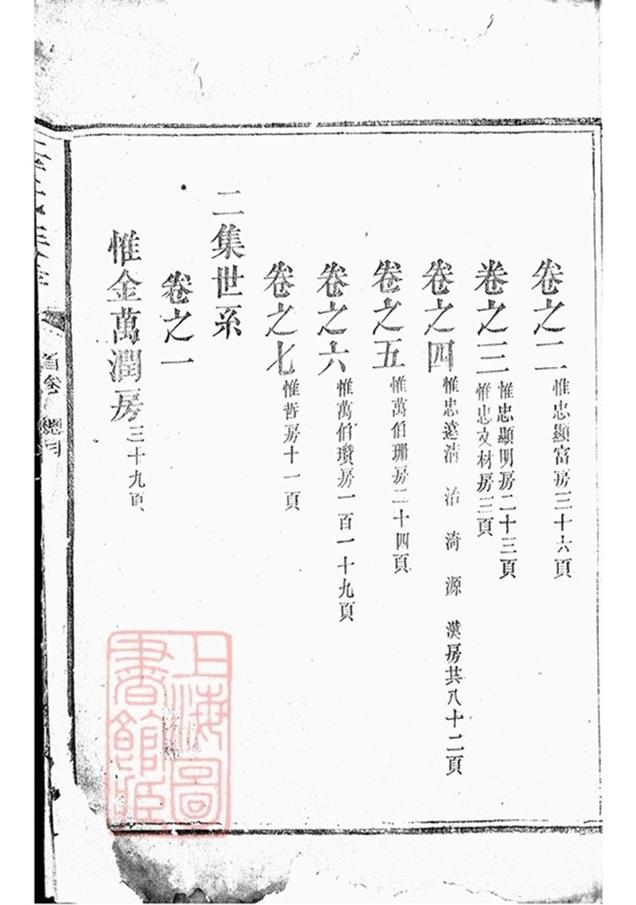 卷之二 惟忠顯富房三十六頁
卷之三 惟忠顯明房二十三頁
惟忠文材房三頁
卷之四 惟忠遠清 治 漪 源 漢房共八十二頁
卷之五 惟萬伯珊房二十四頁
卷之六 惟萬伯瓚房一百一十九頁
卷之七 惟哲房十一頁
二集世系
卷之一
惟金萬潤房三十九頁
首卷 總目
上海圖
書館藏